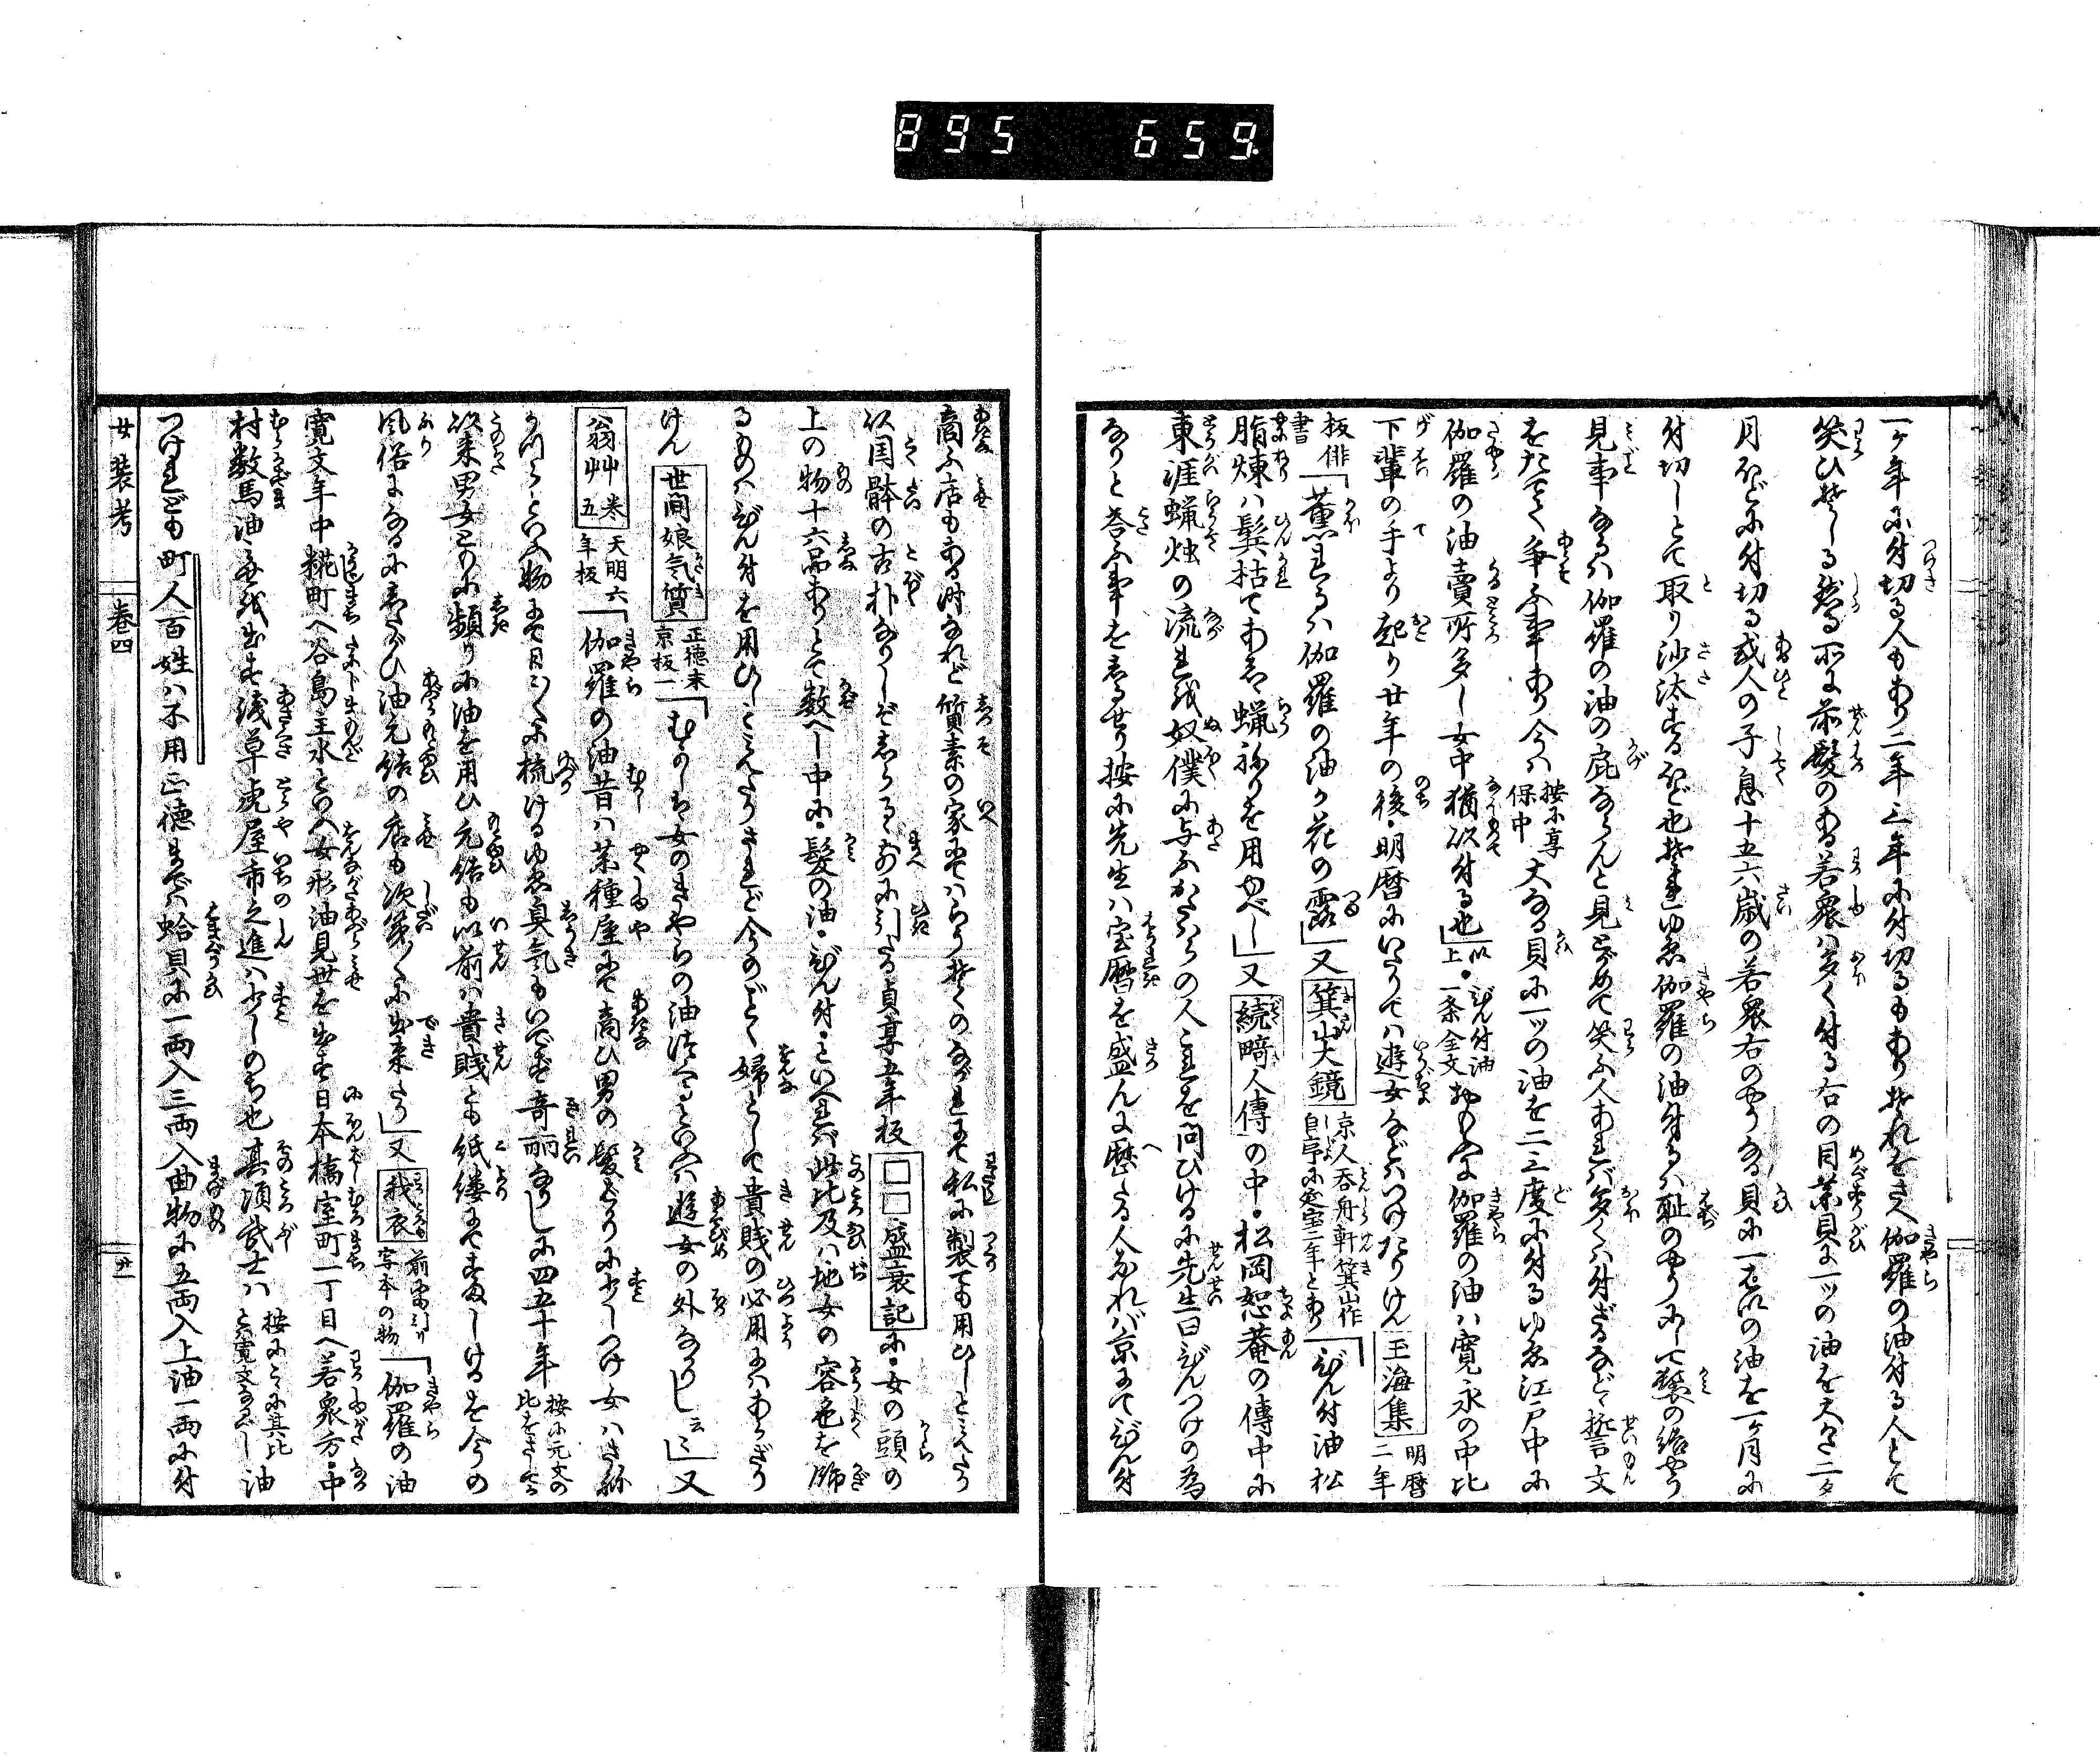 895 659
一ケ年に付切る人もあり二年三年に付切るもありそれをさへ伽羅の油付る人とて
笑ひそしる然る所に前髪のある若衆は多く付る右の目薬貝に一ツの油を大かた二タ
月ほどに付切る或人の子息十五六歳の若衆右のやうなる貝に一ぱいの油を一ヶ月に
付切しとて取り沙汰するほど也それゆゑ伽羅の油付るは恥のやうにして鬢の結やう
見事なるは伽羅の油の庇ならんと見とがめて笑ふ人あれば多くは付ざるなどゝ誓文
をたてゝ争ふ事あり今は 按に享保中 大なる貝に一ツの油を二三度に付るゆゑ江戸中に
伽羅の油賣所多し女中猶以付る也」以上一条全文 ○びん付油 おもふに伽羅の油は寛永の中比
下輩の手より起り廿年の後明暦にいたりては遊女などはつけたりけん 玉海集 明暦二年
板俳書「薫るは伽羅の油か花の露」又 箕山大鏡 京人呑舟軒箕山作自序に延宝二年とあり「びん付油松
脂煉は鬂枯てあしゝ蝋ねりを用べし」又 続畸人傳 の中松岡恕菴の傳中に
東涯蝋烛の流れを奴僕に与ふかたはらの人これを問ひけるに先生曰びんつけの為
なりと荅ふ事をしるせり按に先生は宝暦を盛んに歴たる人なれば京にてびん付
商ふ店もある時なれど質素の家にてはらうそくのながれにて私に製ても用ひしとみえたり
以国躰の古朴なりしぞしらるゝ前に引たる貞享五年板 □□盛衰記 に女の頭の
上の物十六品ありとて数へし中に髪の油びん付といへれば此比及は地女の容色を飾
るものはびん付を用ひしとみえたりされど今のごとく婦とうして貴賤の必用にはあらざり
けん 世間娘気質 正徳末京板一「むかしは女のきやらの油つけるといへば遊女の外なかりし云々」又
翁艸 巻五 天明六年板「伽羅の油昔は薬種屋にて商ひ男の髪ばかりに少しつけ女はさね
かづらといふ物にて目はじくに梳けるゆゑ臭気もいでず奇麗なりしに四五十年 按に元文の比をさせる
以来男女ともに頻りに油を用ひ元結も以前は貴賤とも紙縷にてすましけるを今の
風俗になるにしたがひ油元結の店も次第〱に出来たり」又 我衣 前にも引り写本の物「伽羅の油
寛文年中糀町へ谷島主水といへ女形油見世を出す日本橋室町一丁目へ若衆方中
村数馬油みせ出す浅草虎屋市之進は少しのち也其頃武士は 按にこゝに其比と寛文なるべし 油
つけれども町人百姓は不用正徳までは蛤貝に一両入三両入曲物に五両入上油一両に付
女装考 巻四 廿一